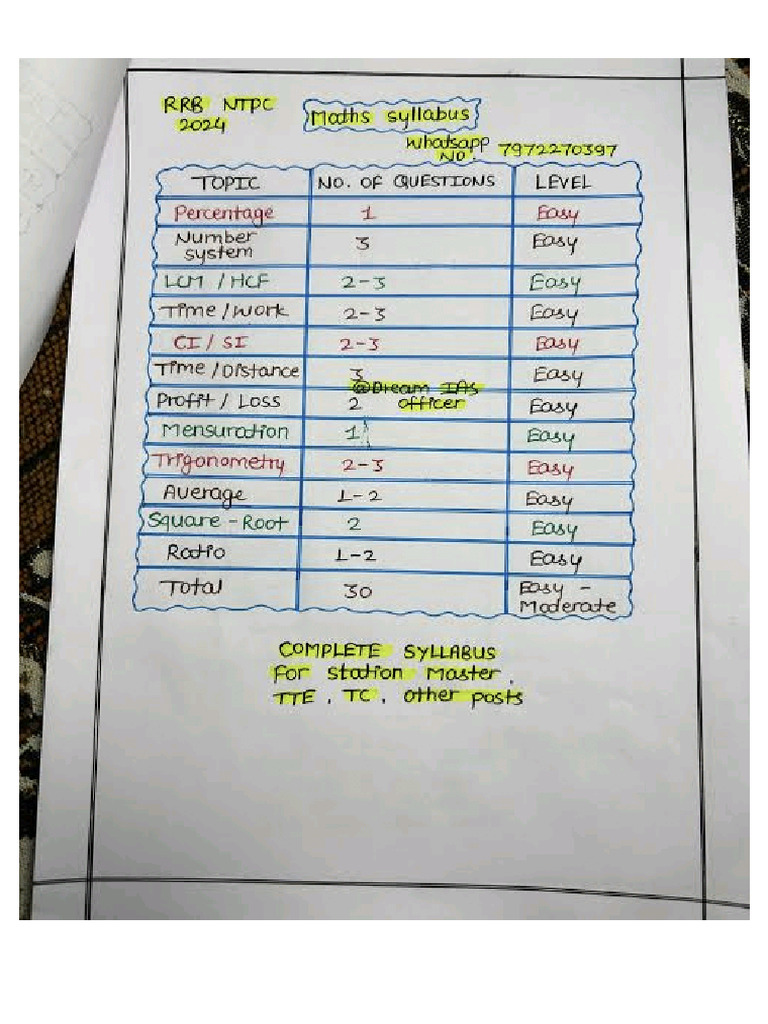 RRB NTPC Maths syllabus
2024
Whatsapp NO. 7972270397
TOPIC NO. OF QUESTIONS LEVEL
Percentage 1 Easy
Number system 3 Easy
LCM / HCF 2-3 Easy
Time / Work 2-3 Easy
CI / SI 2-3 Easy
Time / Distance 3 Easy
@Dream IAS officer
Profit / Loss 2 Easy
Mensuration 1 Easy
Trigonometry 2-3 Easy
Average 1-2 Easy
Square - Root 2 Easy
Ratio 1-2 Easy
Total 30 Easy - Moderate
COMPLETE SYLLABUS
For station Master,
TTE, TC, other posts